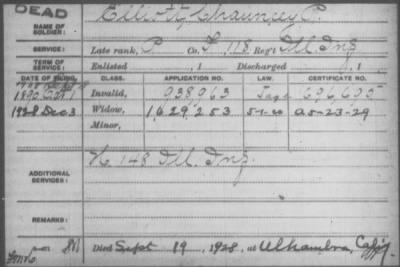 DEAD
NAME OF SOLDIER: Elliott, Chauncey C.
SERVICE: Late rank, P Co. F, 118 Reg't Ill. Inf.
TERM OF SERVICE: Enlisted , 1 Discharged , 1
DATE OF FILING. CLASS. APPLICATION NO. LAW. CERTIFICATE NO.
1890 Invalid, 938,963 696,695
1928 Dec 3 Widow, 1,629,253 5-1-20 A5-23-29
Minor,
ADDITIONAL SERVICES: K 148 Ill. Inf.
REMARKS:
Died Sept 19, 1928, at Alhambra, Calif.